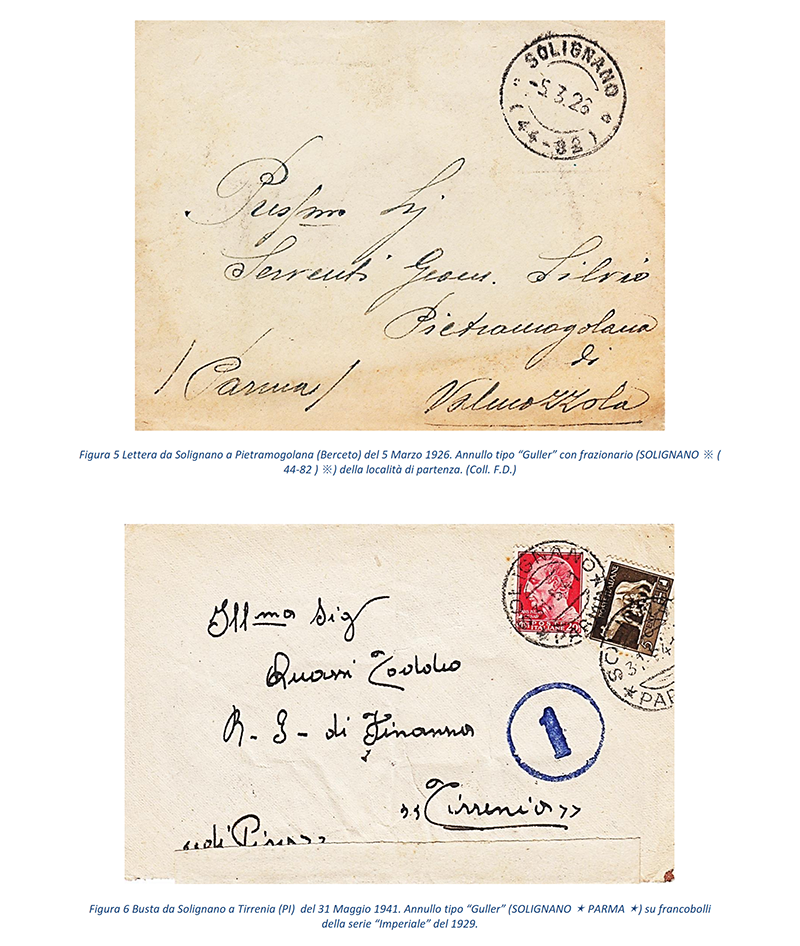 SOLIGNANO
-5.3.26
(44-82)
Preg/mo Sig
Serventi Geom. Silvio
Pietramogolana
di
/Parma/
Valmozzola
Figura 5 Lettera da Solignano a Pietramogolana (Berceto) del 5 Marzo 1926. Annullo tipo “Guller” con frazionario (SOLIGNANO ※ (
44-82 ) ※) della località di partenza. (Coll. F.D.)
SOLIGNANO ★
★ PARMA
Ill ma Sig
R. G - di Finanza
1
"Tirrenia"
"di Pisa"
Figura 6 Busta da Solignano a Tirrenia (PI) del 31 Maggio 1941. Annullo tipo “Guller” (SOLIGNANO ✶ PARMA ✶) su francobolli
della serie “Imperiale” del 1929.